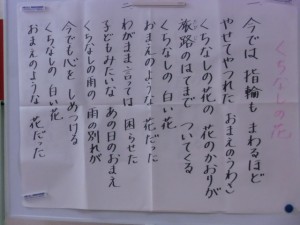 くちなしの花
今では 指輪も まわるほど
やせてやつれた おまえのうわさ
くちなしの花の 花のかおりが
旅路のはてまで ついてくる
くちなしの 白い花
おまえのような 花だった
わがまま言っては 困らせた
子どもみたいな あの日のおまえ
くちなしの雨の 雨の別れが
今でも心を しめつける
くちなしの 白い花
おまえのような 花だった